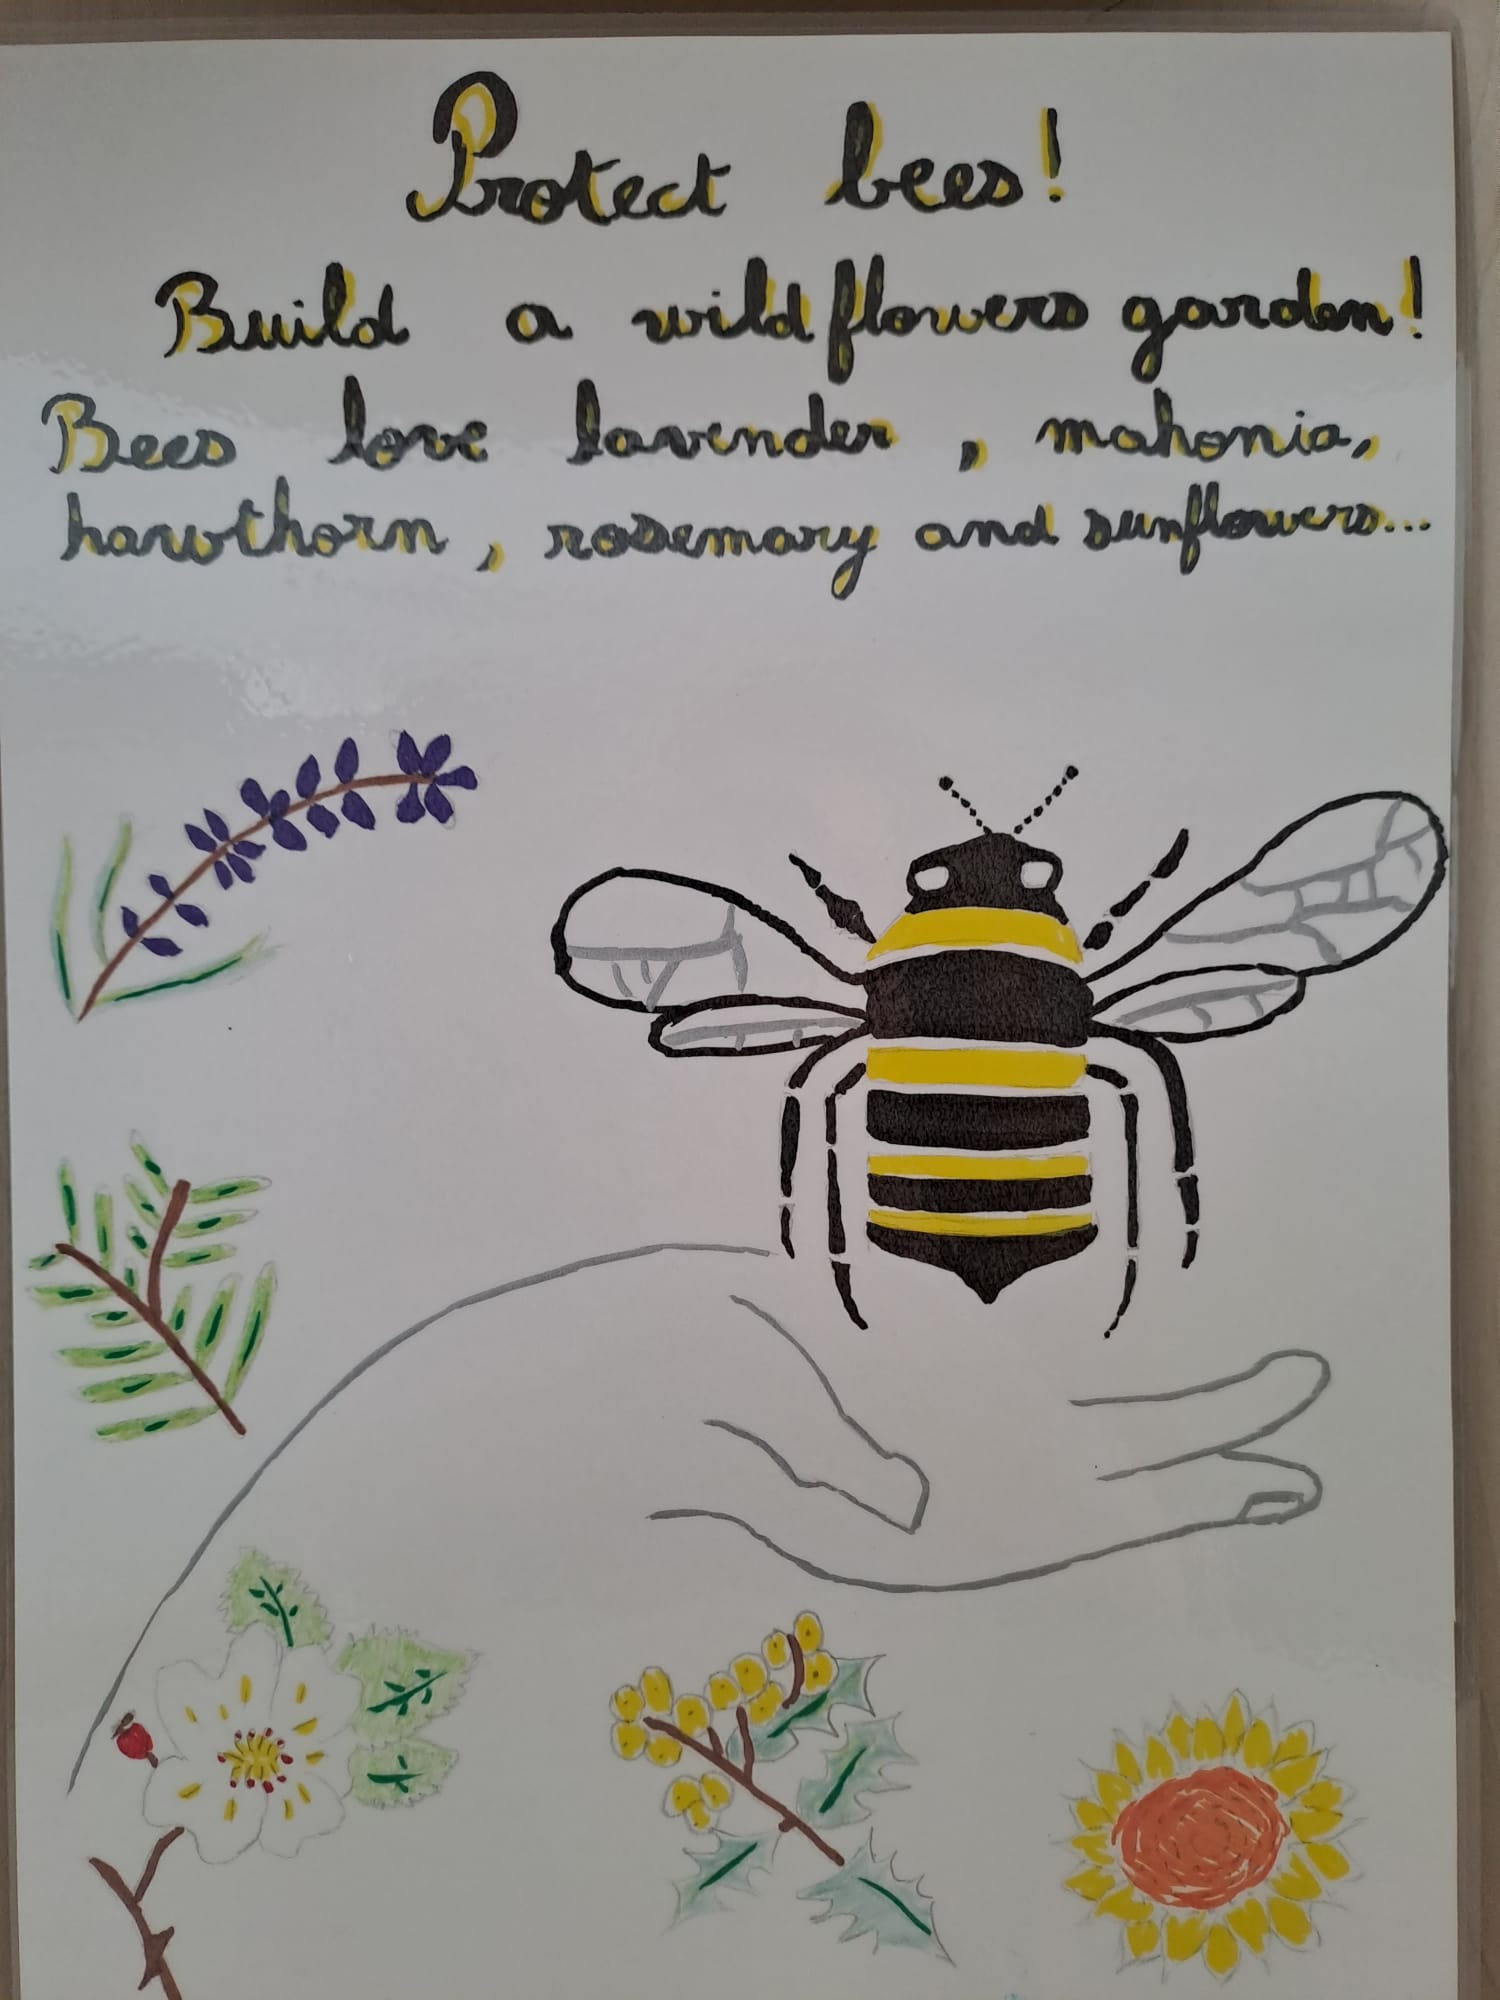 Protect bees!
Build a wildflowers garden!
Bees love lavender, mahonia,
hawthorn, rosemary and sunflowers...